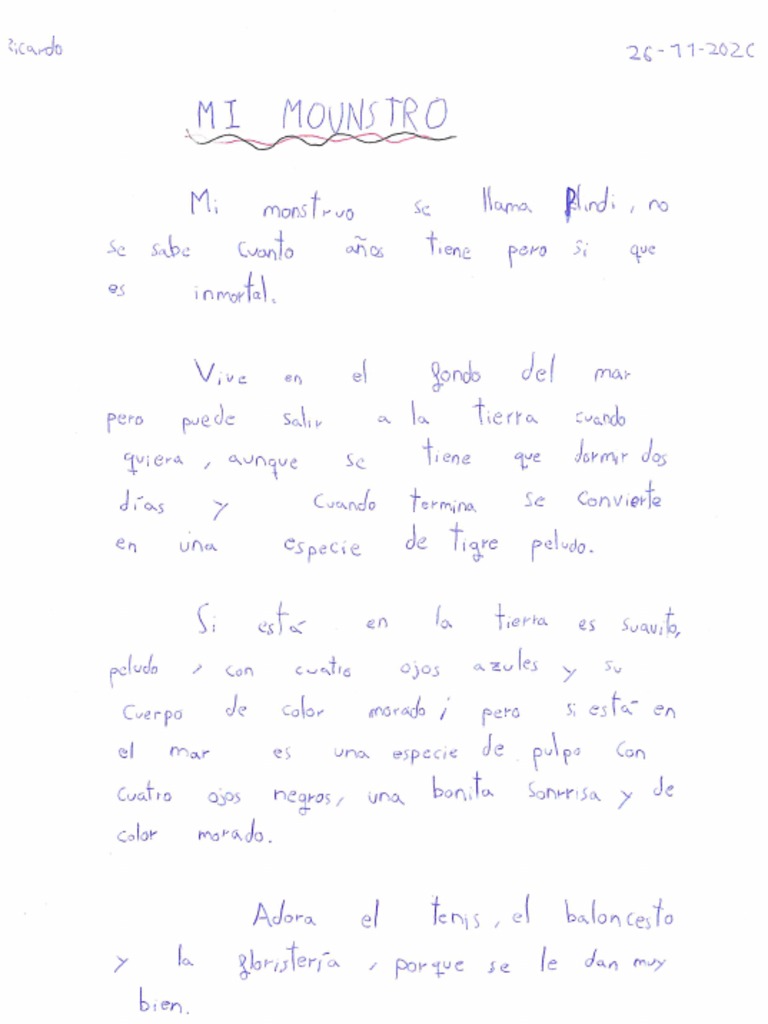 Ricardo
26-11-202
MI MOUNSTRO
Mi monstruo se llama Blindi, no
se sabe cuanto años tiene pero si que
es inmortal.
Vive en el fondo del mar
pero puede salir a la tierra cuando
quiera, aunque se tiene que dormir dos
días y cuando termina se convierte
en una especie de tigre peludo.
Si está en la tierra es suavito,
peludo, con cuatro ojos azules y su
cuerpo de color morado; pero si está en
el mar es una especie de pulpo con
cuatro ojos negros, una bonita sonrrisa y de
color morado.
Adora el tenis, el baloncesto
y la floristería, porque se le dan muy
bien.